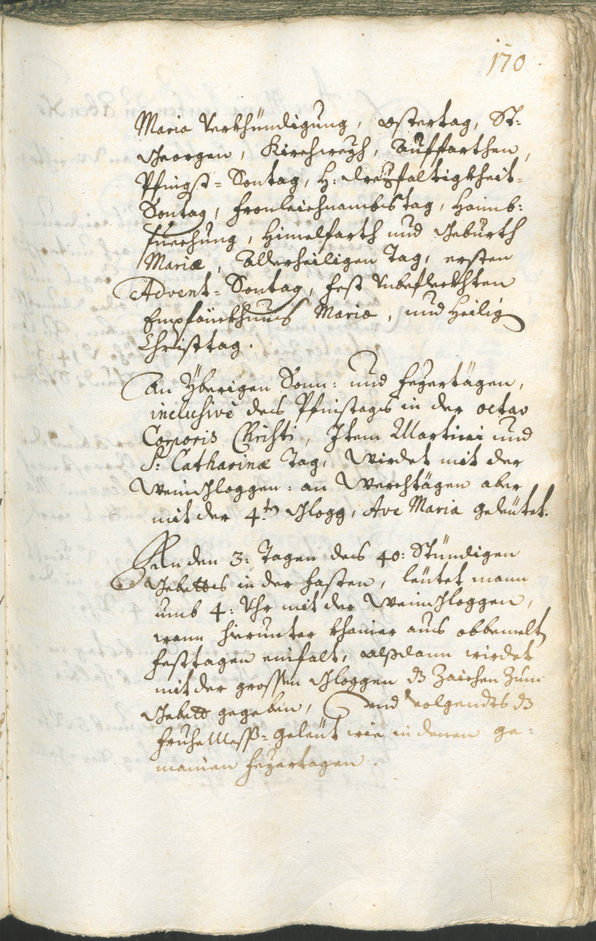 170
Maria Verkhündigung, Ostertag, St:
Georgen, Kirchweyh, Auffarthen,
Pfingst-Sontag, H: Dreyfaltigkheit-
Sontag, Fronleichnambstag, Haimb:
suechung, Himelfarth und Geburth
Mariæ, Allerheiligen Tag, ersten
Advent-Sontag, Fest Unbeflekhten
Empfänkhnus Mariæ, und Heilig
Christtag.
An yberigen Sonn: und Feyertägen,
inclusivè des Pfinstags in der octav
Corporis Christi, Item Martini und
S: Catharinæ Tag, wirdet mit der
Weingloggen: an Werchtägen aber
mit der 4.ten Glogg, Ave Maria geleütet.
An den 3: Tagen des 40: Stündigen
Gebettes in der Fasten, leütet mann
umb 4: Uhr mit der Weingloggen,
wann hierunter khainer aus obbemelt
Festtagen einfalt, alßdann wirdet
mit der grossen Gloggen dz Zaichen zum
Gebett gegeben, und volgendts dz
FrüheMess-geleüt wie in denen ge:
mainen Feyertagen.